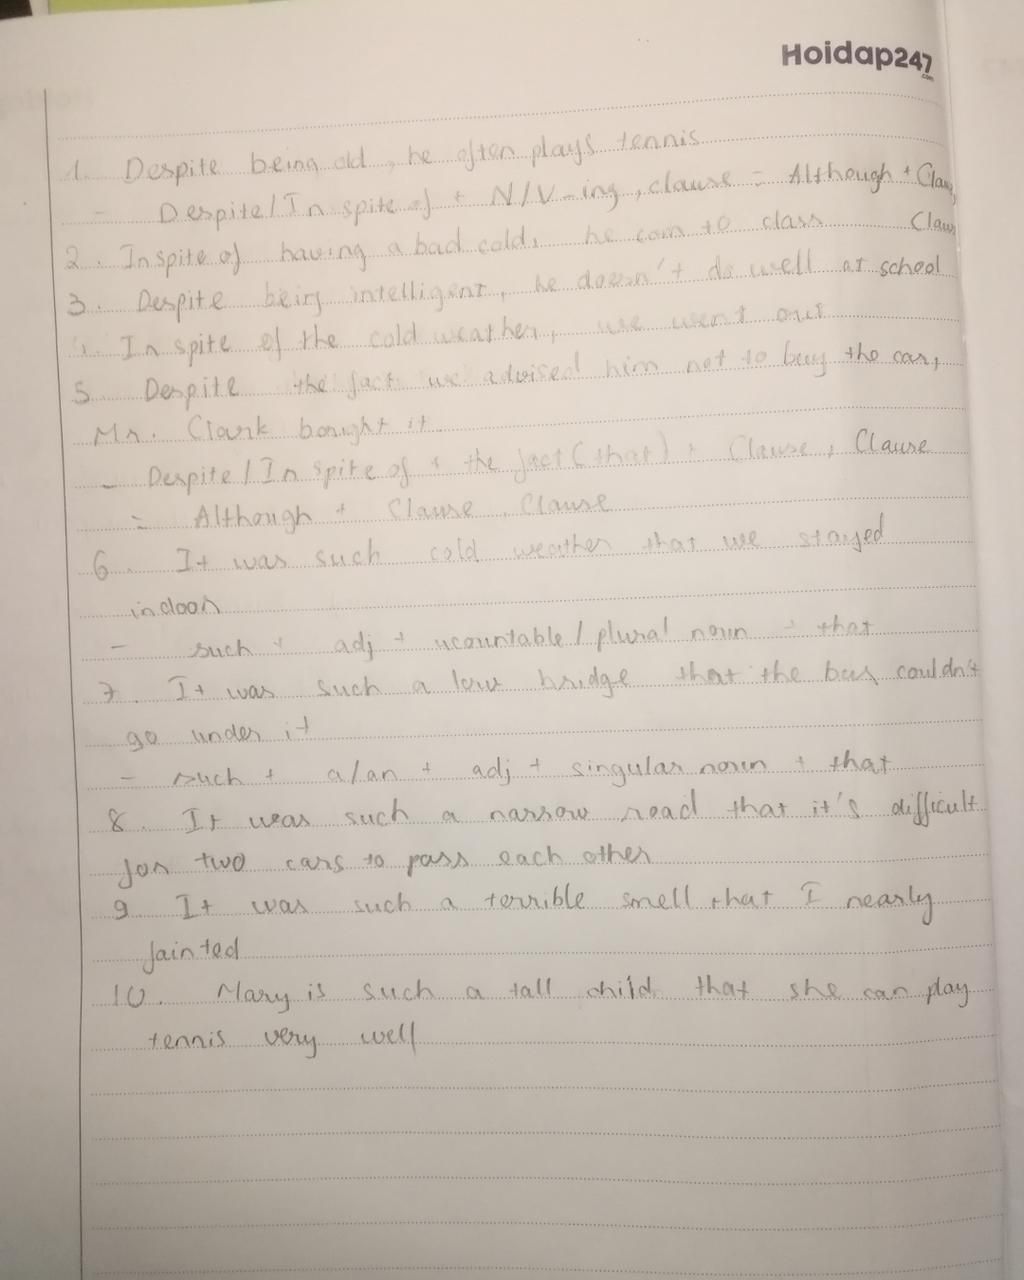 Hoidap247
.com
1. Despite being old, he often plays tennis
- Despite/In spite of + N/V-ing, clause = Although + Clau,
Clau
2. Inspite of having a bad cold, he com to class
3. Despite being intelligent, he doesn't do well at school
4. In spite of the cold weather, we went out
5. Despite the fact we advised him not to buy the car,
Mr. Clark bought it.
- Despite/In spite of + the fact (that) + Clause, Clause
= Although + Clause, Clause
6. It was such cold weather that we stayed
indoor
- such + adj + ucountable/plural noun + that
7. It was such a low bridge that the bus couldn't
go under it
- such + a/an + adj + singular noun + that
8. It was such a narrow road that it's difficult
for two cars to pass each other
9. It was such a terrible smell that I nearly
fainted
10. Mary is such a tall child that she can play
tennis very well